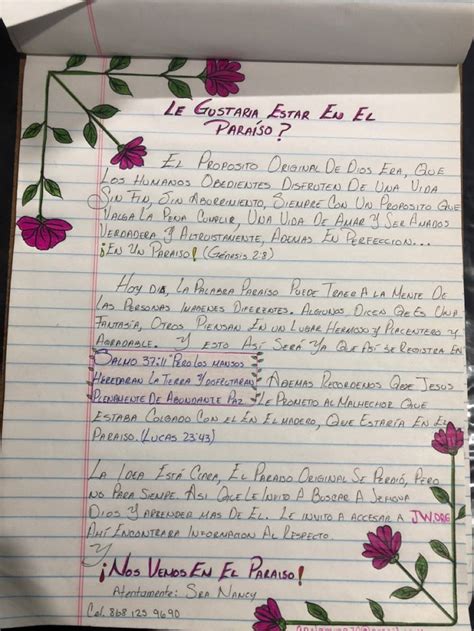 LE GUSTARIA ESTAR EN EL
PARAÍSO?
EL PROPOSITO ORIGINAL DE DIOS ERA, QUE
LOS HUMANOS OBEDIENTES DISFRUTEN DE UNA VIDA
SIN FIN, SIN ABURRIMIENTO, SIEMPRE CON UN PROPOSITO QUE
VALGA LA PENA CUMPLIR, UNA VIDA DE AMAR Y SER AMADOS
VERDADERA Y ALTRUISTAMENTE, ADEMAS EN PERFECCION...
¡EN UN PARAISO! (GÉNESIS 2:8)
HOY DIA, LA PALABRA PARAISO PUEDE TRAER A LA MENTE DE
LAS PERSONAS IMAGENES DIFERENTES. ALGUNOS DICEN QUE ES UNA
FANTASÍA, OTROS PIENSAN EN UN LUGAR HERMOSO Y PLACENTERO Y
AGRADABLE. Y ESTO ASI SERÁ YA QUE ASI SE REGISTRA EN
SALMO 37:11 "PERO LOS MANSOS
HEREDARAN LA TIERRA Y DISFRUTARAN ADEMAS RECORDEMOS QUE JESUS
PLENAMENTE DE ABUNDANTE PAZ LE PROMETIO AL MALHECHOR QUE
ESTABA COLGADO CON EL EN EL MADERO, QUE ESTARÍA EN EL
PARAISO. (LUCAS 23:43)
LA IDEA ESTÁ CLARA, EL PARADO ORIGINAL SE PERDIÓ, PERO
NO PARA SIEMPRE. ASI QUE LE INVITO A BUSCAR A JEHOVA
DIOS Y APRENDER MAS DE EL. LE INVITO A ACCESAR A JW.ORG
AHÍ ENCONTRARA INFORMACION AL RESPECTO.
Y
¡NOS VEMOS EN EL PARAISO!
ATENTAMENTE: SRA NANCY
CEL. 868 125 9690